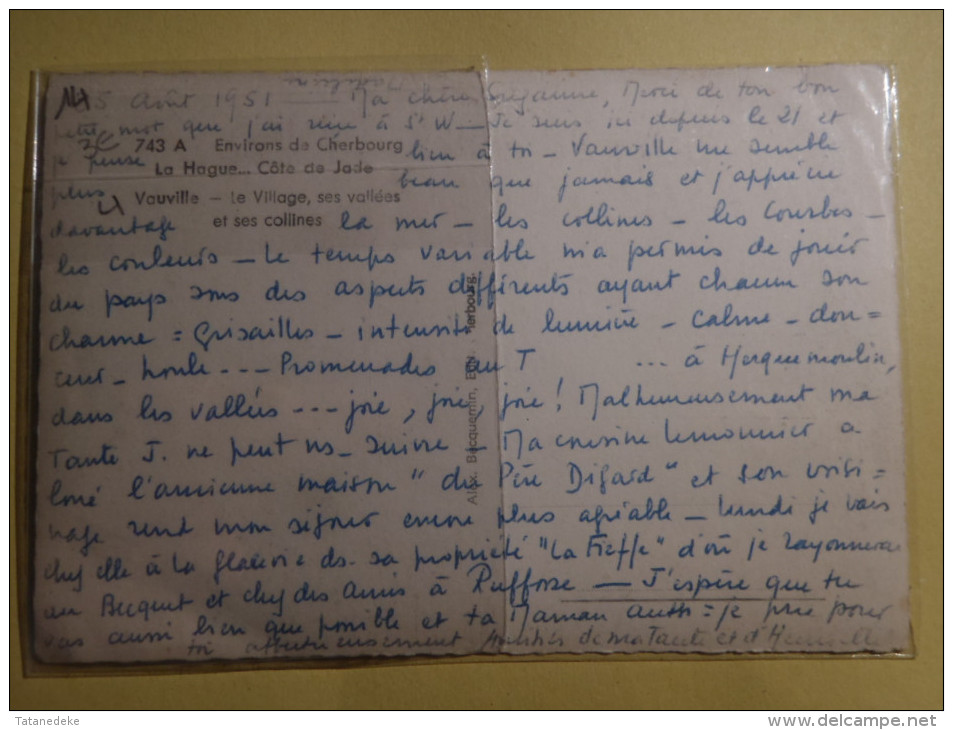 5 Août 1951 — Ma chère Suzanne, Merci de ton bon
petit mot que j'ai reçu à St W — Je suis ici depuis le 21 et
je pense bien à toi — Vauville me semble
743 A Environs de Cherbourg
La Hague... Côte de Jade
Vauville — Le Village, ses vallées
et ses collines
plus beau que jamais et j'apprécie
davantage la mer — les collines — les courbes —
les couleurs — Le temps variable m'a permis de jouir
du pays sous des aspects différents ayant chacun son
charme = Grisailles — intensité de lumière — calme — dou=
ceur — houle --- Promenades au T ... à Herquemoulin,
dans les vallées --- joie, joie, joie! Malheureusement ma
Tante J. ne peut ns. suivre — Ma cousine Lemonnier a
loué l'ancienne maison "du Père Digard" et son voisi=
nage rend mon séjour encore plus agréable — Lundi je vais
chez elle à La Glacerie ds. sa propriété "La Fieffe" d'où je rayonnerai
au Becquet et chez des amis à — J'espère que tu
vas aussi bien que possible et ta Maman aussi = je prie pour
toi affectueusement de ma Tante et d'
Alex. Becquemin, Edit. Cherbourg.
Tatanedeke
www.delcampe.net